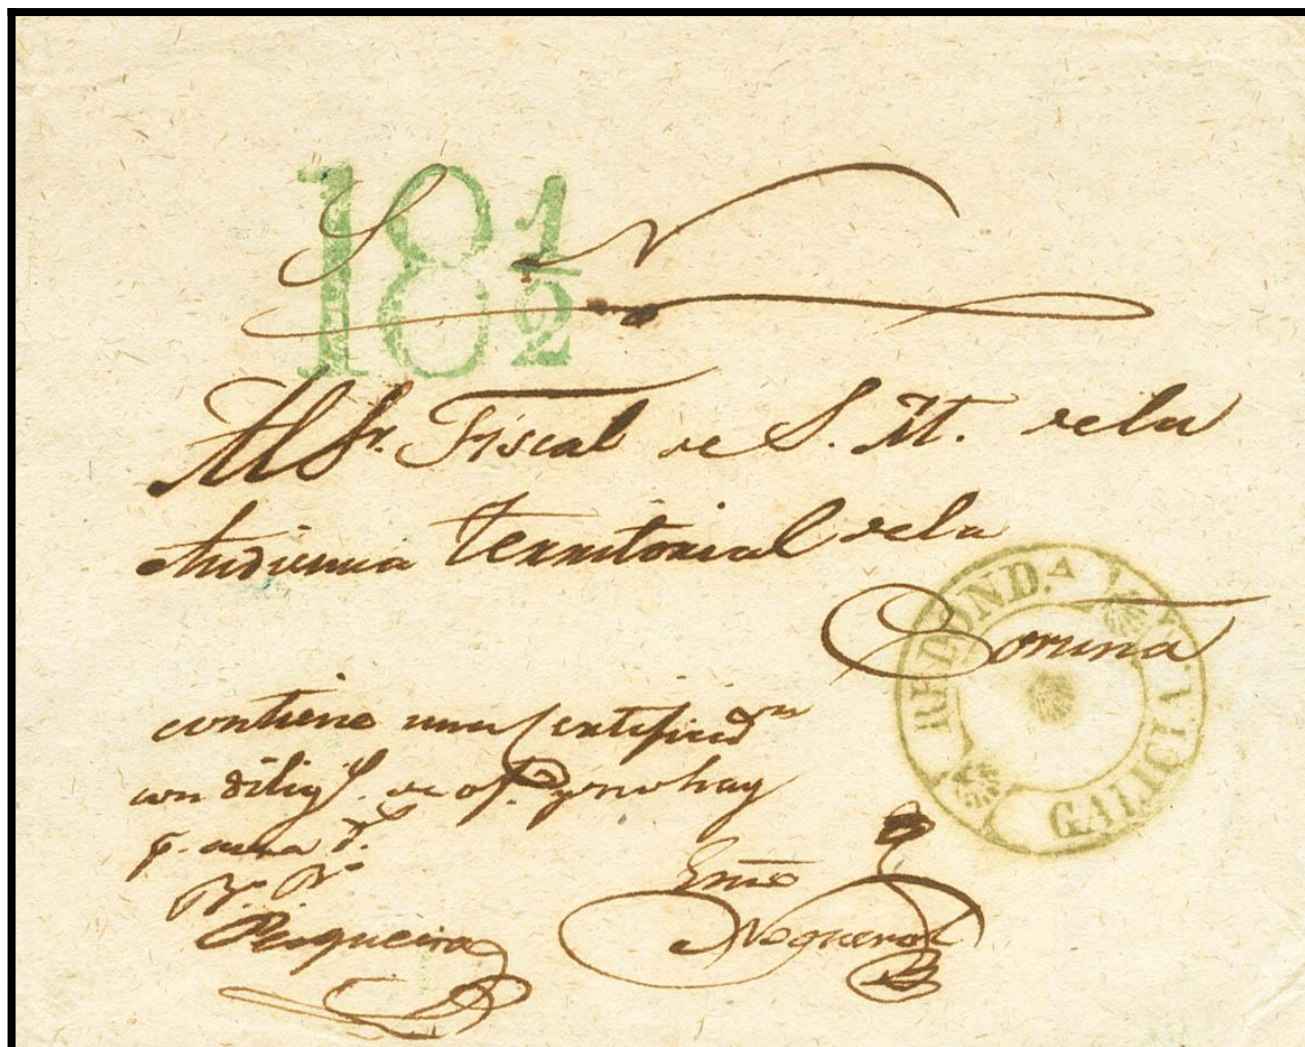 18 1/2
S N
Al Sr. Fiscal de S. M. dela
Audiencia Territorial dela
Coruna
REDOND.A
GALICIA.
contiene una Certificdon
con dilig.s de of.
Vo. Bo.
Pesqueira
Noguerol